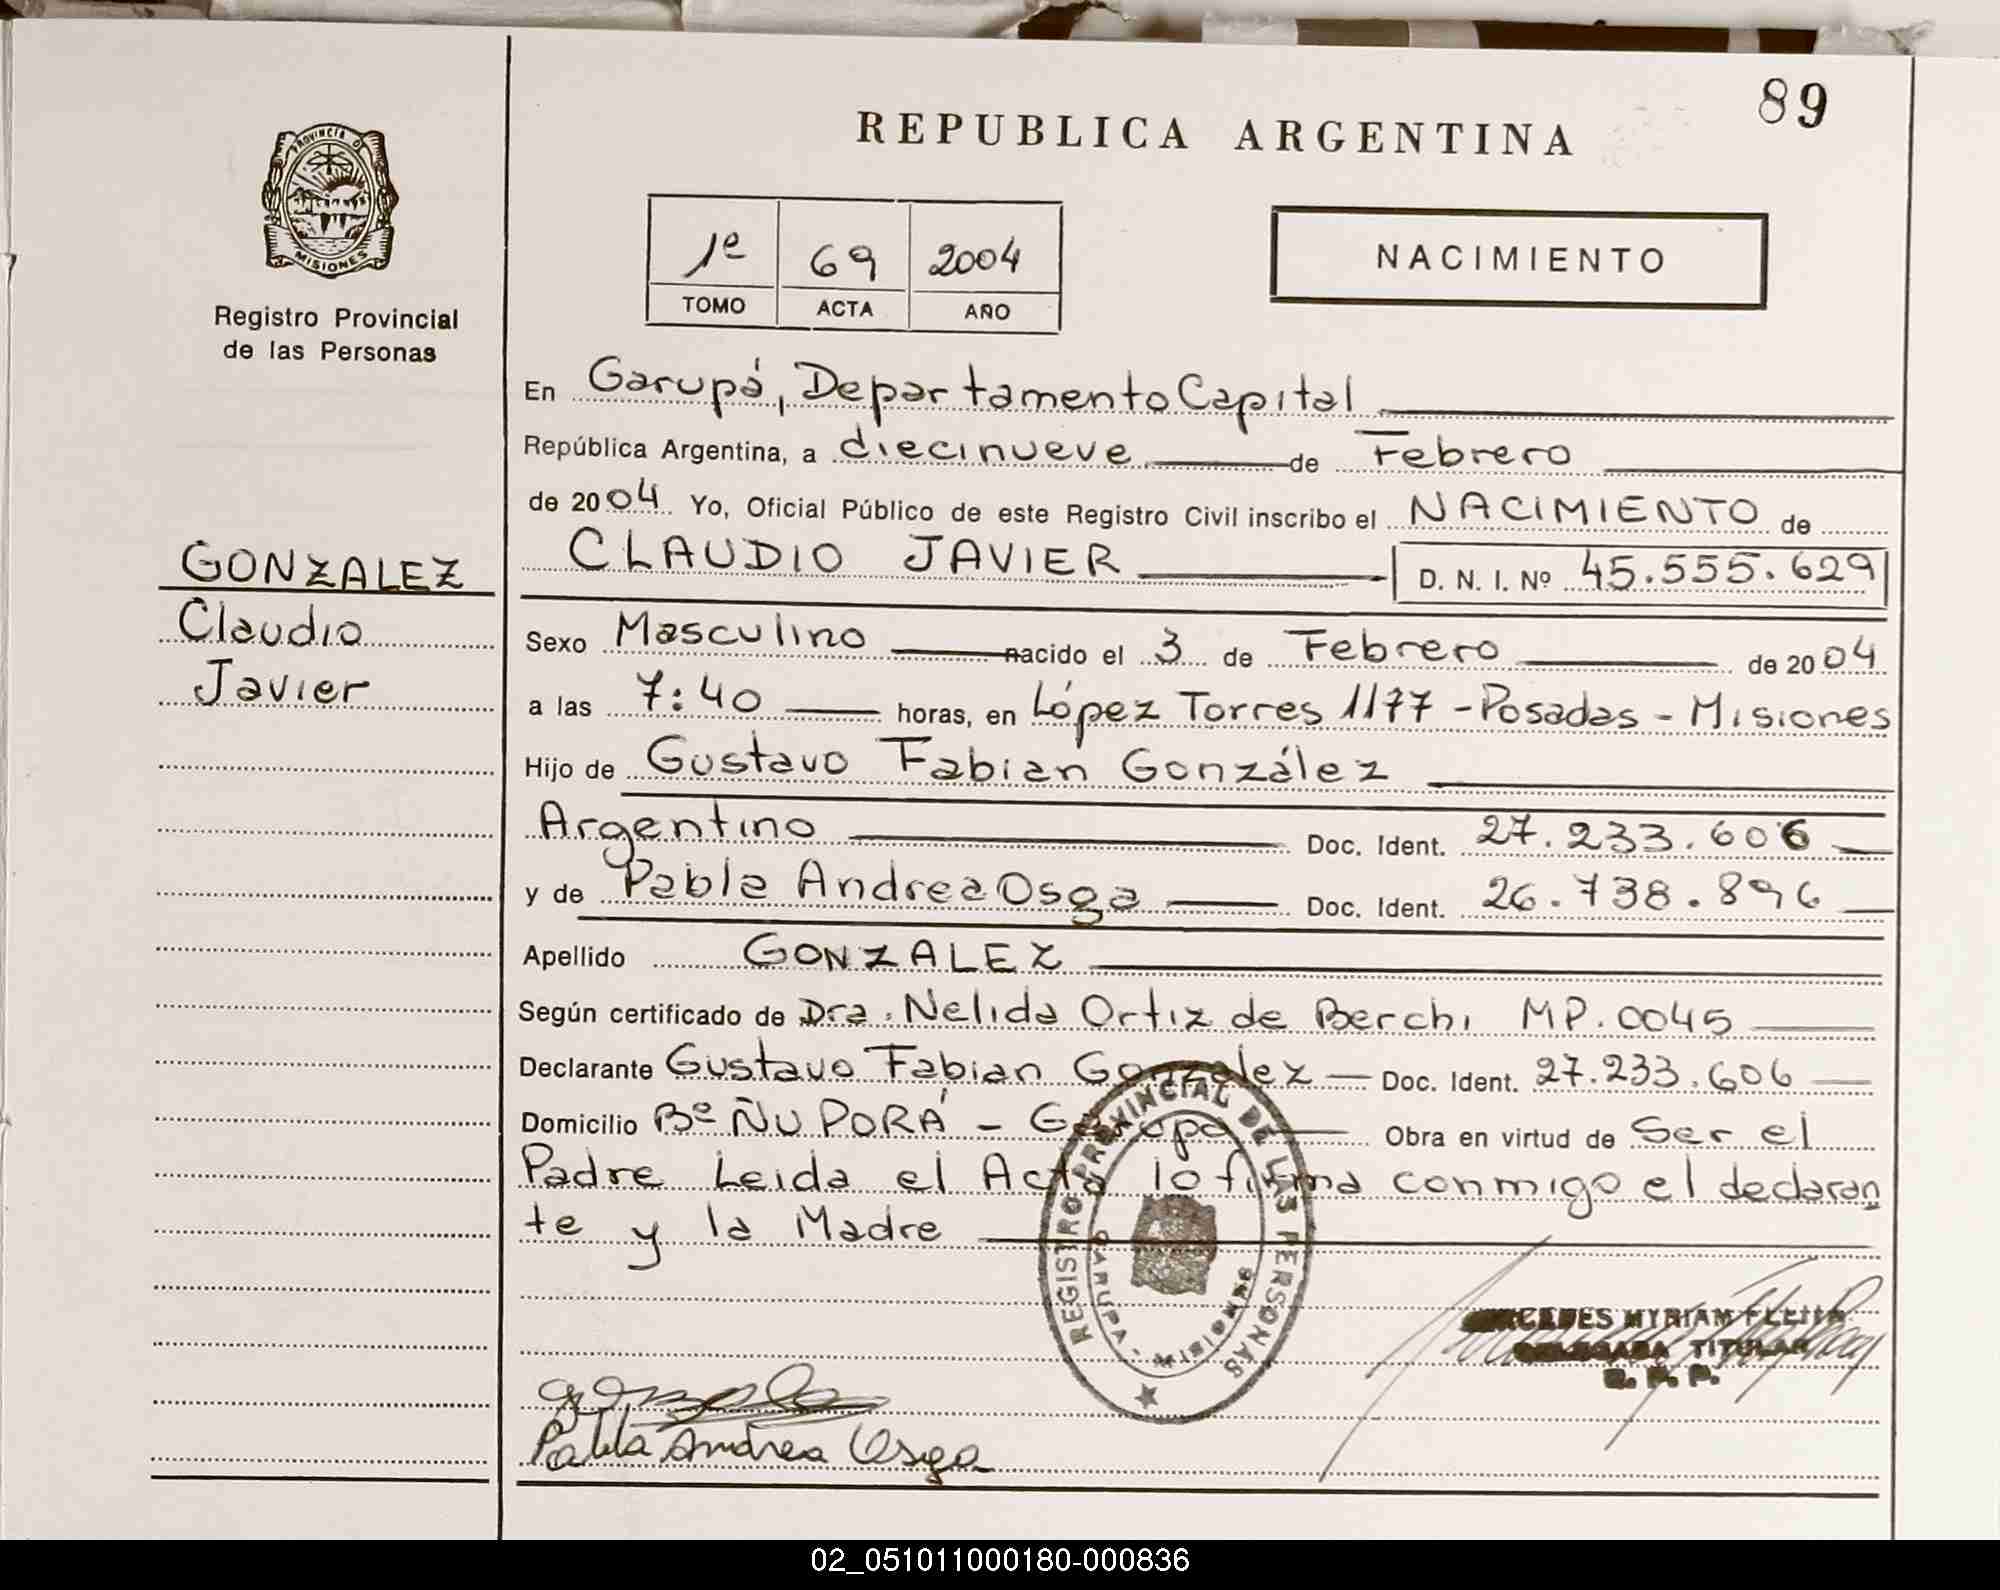 89
REPUBLICA ARGENTINA
PROVINCIA D
MISIONES
Registro Provincial
de las Personas
1e 69 2004
TOMO ACTA AÑO
NACIMIENTO
En Garupá, Departamento Capital
República Argentina, a diecinueve de Febrero
de 2004 Yo, Oficial Público de este Registro Civil inscribo el NACIMIENTO de
CLAUDIO JAVIER D. N. I. Nº 45.555.629
GONZALEZ
Claudio
Javier
Sexo Masculino nacido el 3 de Febrero de 2004
a las 7:40 horas, en López Torres 1177 - Posadas - Misiones
Hijo de Gustavo Fabian González
Argentino Doc. Ident. 27.233.606
y de Pabla Andrea Osga Doc. Ident. 26.738.896
Apellido GONZALEZ
Según certificado de Dra. Nelida Ortiz de Berchi MP. 0045
Declarante Gustavo Fabian Gonzalez Doc. Ident. 27.233.606
Domicilio Bº ÑU PORÁ - Garupa Obra en virtud de Ser el
Padre Leida el Acta lo firma conmigo el declaran
te y la Madre
REGISTRO PROVINCIAL DE LAS PERSONAS
GARUPA - Misiones
MYRIAM
TITULAR
R. P. P.
Pabla Andrea Osga
02_051011000180-000836